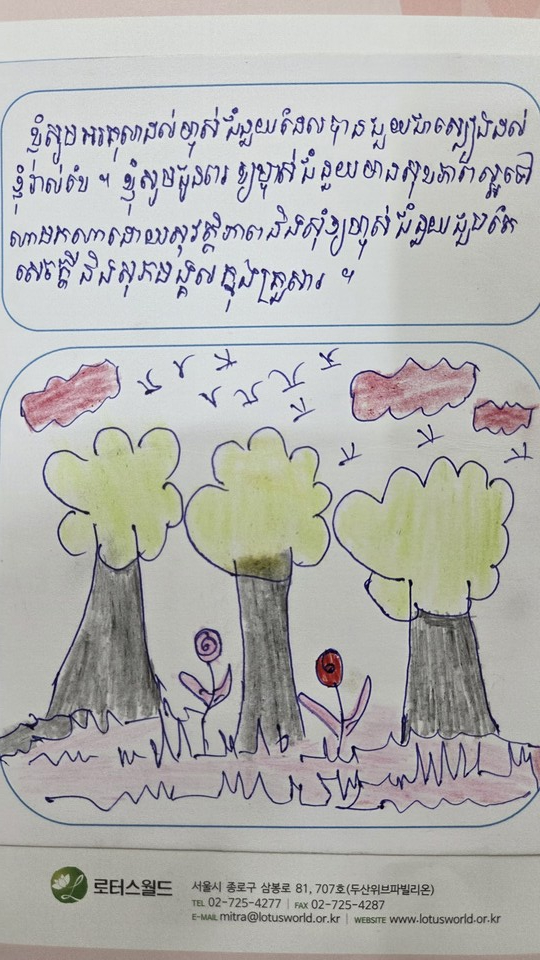 ខ្ញុំសូមអរគុណដល់ម្ចាស់ជំនួយដែលបានជួយជាស្បៀងដល់
ខ្ញុំរាល់ខែ ។ ខ្ញុំសូមជូនពរ ឱ្យម្ចាស់ជំនួយមានសុខភាពល្អទៅ
ណាមកណាដោយសុវត្ថិភាពនិងសុំឱ្យម្ចាស់ជំនួយជួបតែ
សេចក្តី និងសុភមង្គលក្នុងគ្រួសារ ។
로터스월드
서울시 종로구 삼봉로 81, 707호(두산위브파빌리온)
TEL 02-725-4277 | FAX 02-725-4287
E-MAIL mitra@lotusworld.or.kr | WEBSITE www.lotusworld.or.kr